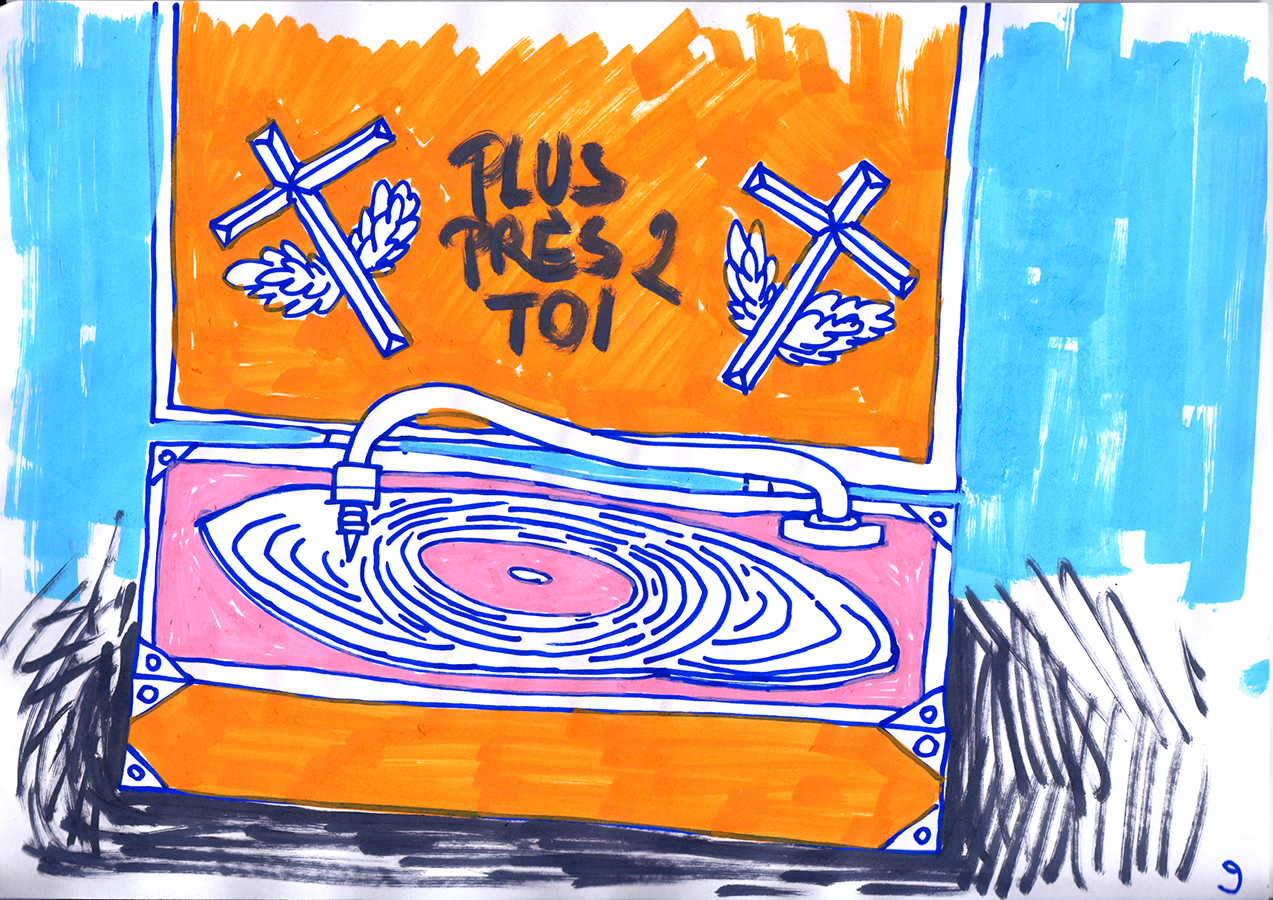 PLUS
PRÈS 2
TOI
9